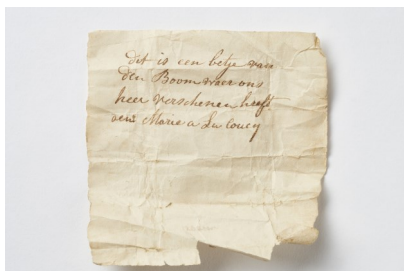 dit is een betje van
den Boom waer ons
heer verschenen heeft
Marie a La